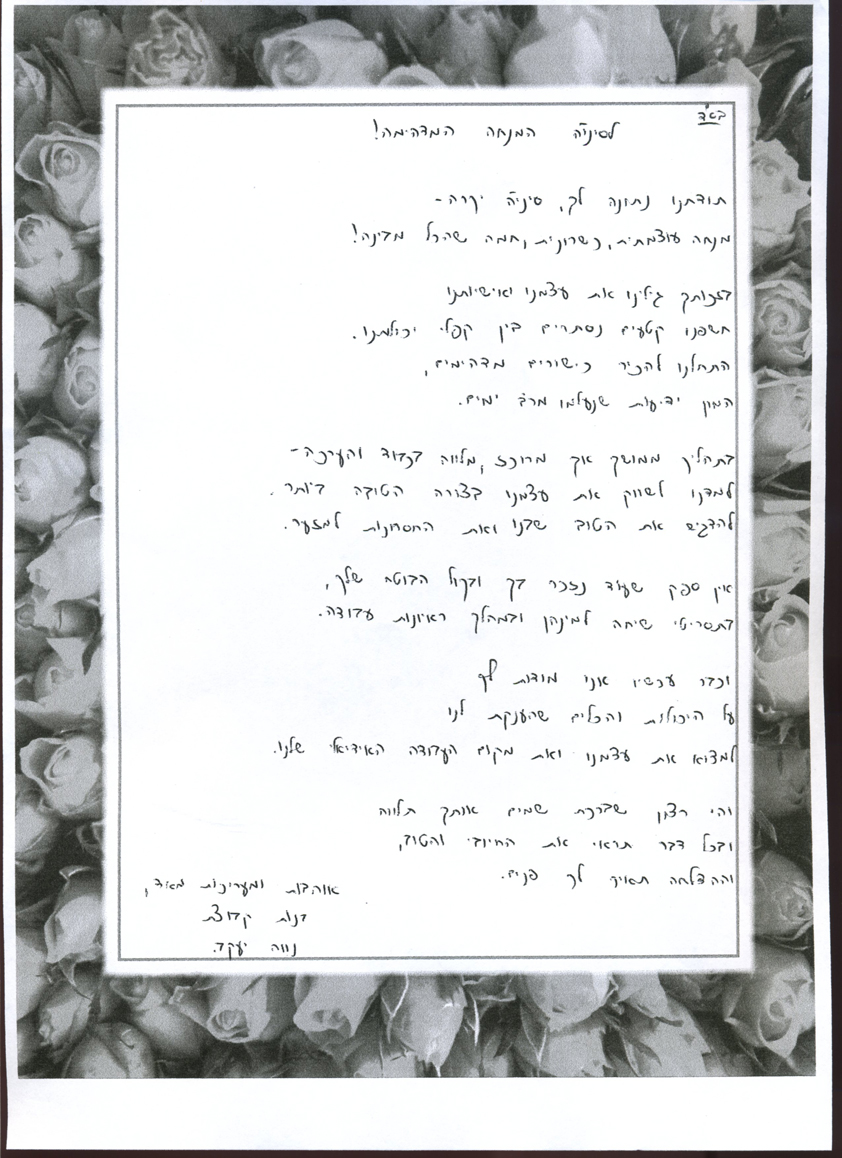 בס"ד
לסיגיה המנחה המדהימה!
תודתנו נתונה לך, סיגיה יקרה-
מנחה עוצמתית, כשרונית, חמה שהכל מבינה!
בזכותך גילינו את עצמנו ואישיותנו
חשפנו קטעים נסתרים בין קפלי יכולתנו.
התחלנו להכיר כישורים מדהימים,
המון ידיעות שנעלמו מרב ימים.
בתהליך ממושך אך מרוכז, מלווה בכבוד והערכה-
למדנו לשווק את עצמנו בצורה הטובה ביותר.
להדגיש את הטוב שבנו ואת החסרונות למזער.
אין ספק שעוד נזכר בך ובקול הבוטח שלך,
בתסריטי שיחה למיניהן ובמהלך ראיונות עבודה.
וכבר עכשיו אנו מודות לך
על היכולות והכלים שהענקת לנו
למצוא את עצמנו ואת מקום העבודה האידיאלי שלנו.
ויהי רצון שברכת שמים אותך תלווה
ובכל דבר תראי את החיובי והטוב,
וההצלחה תאיר לך פנים.
אוהבות ומעריכות מאוד,
בנות קבוצת
נווה יעקב.